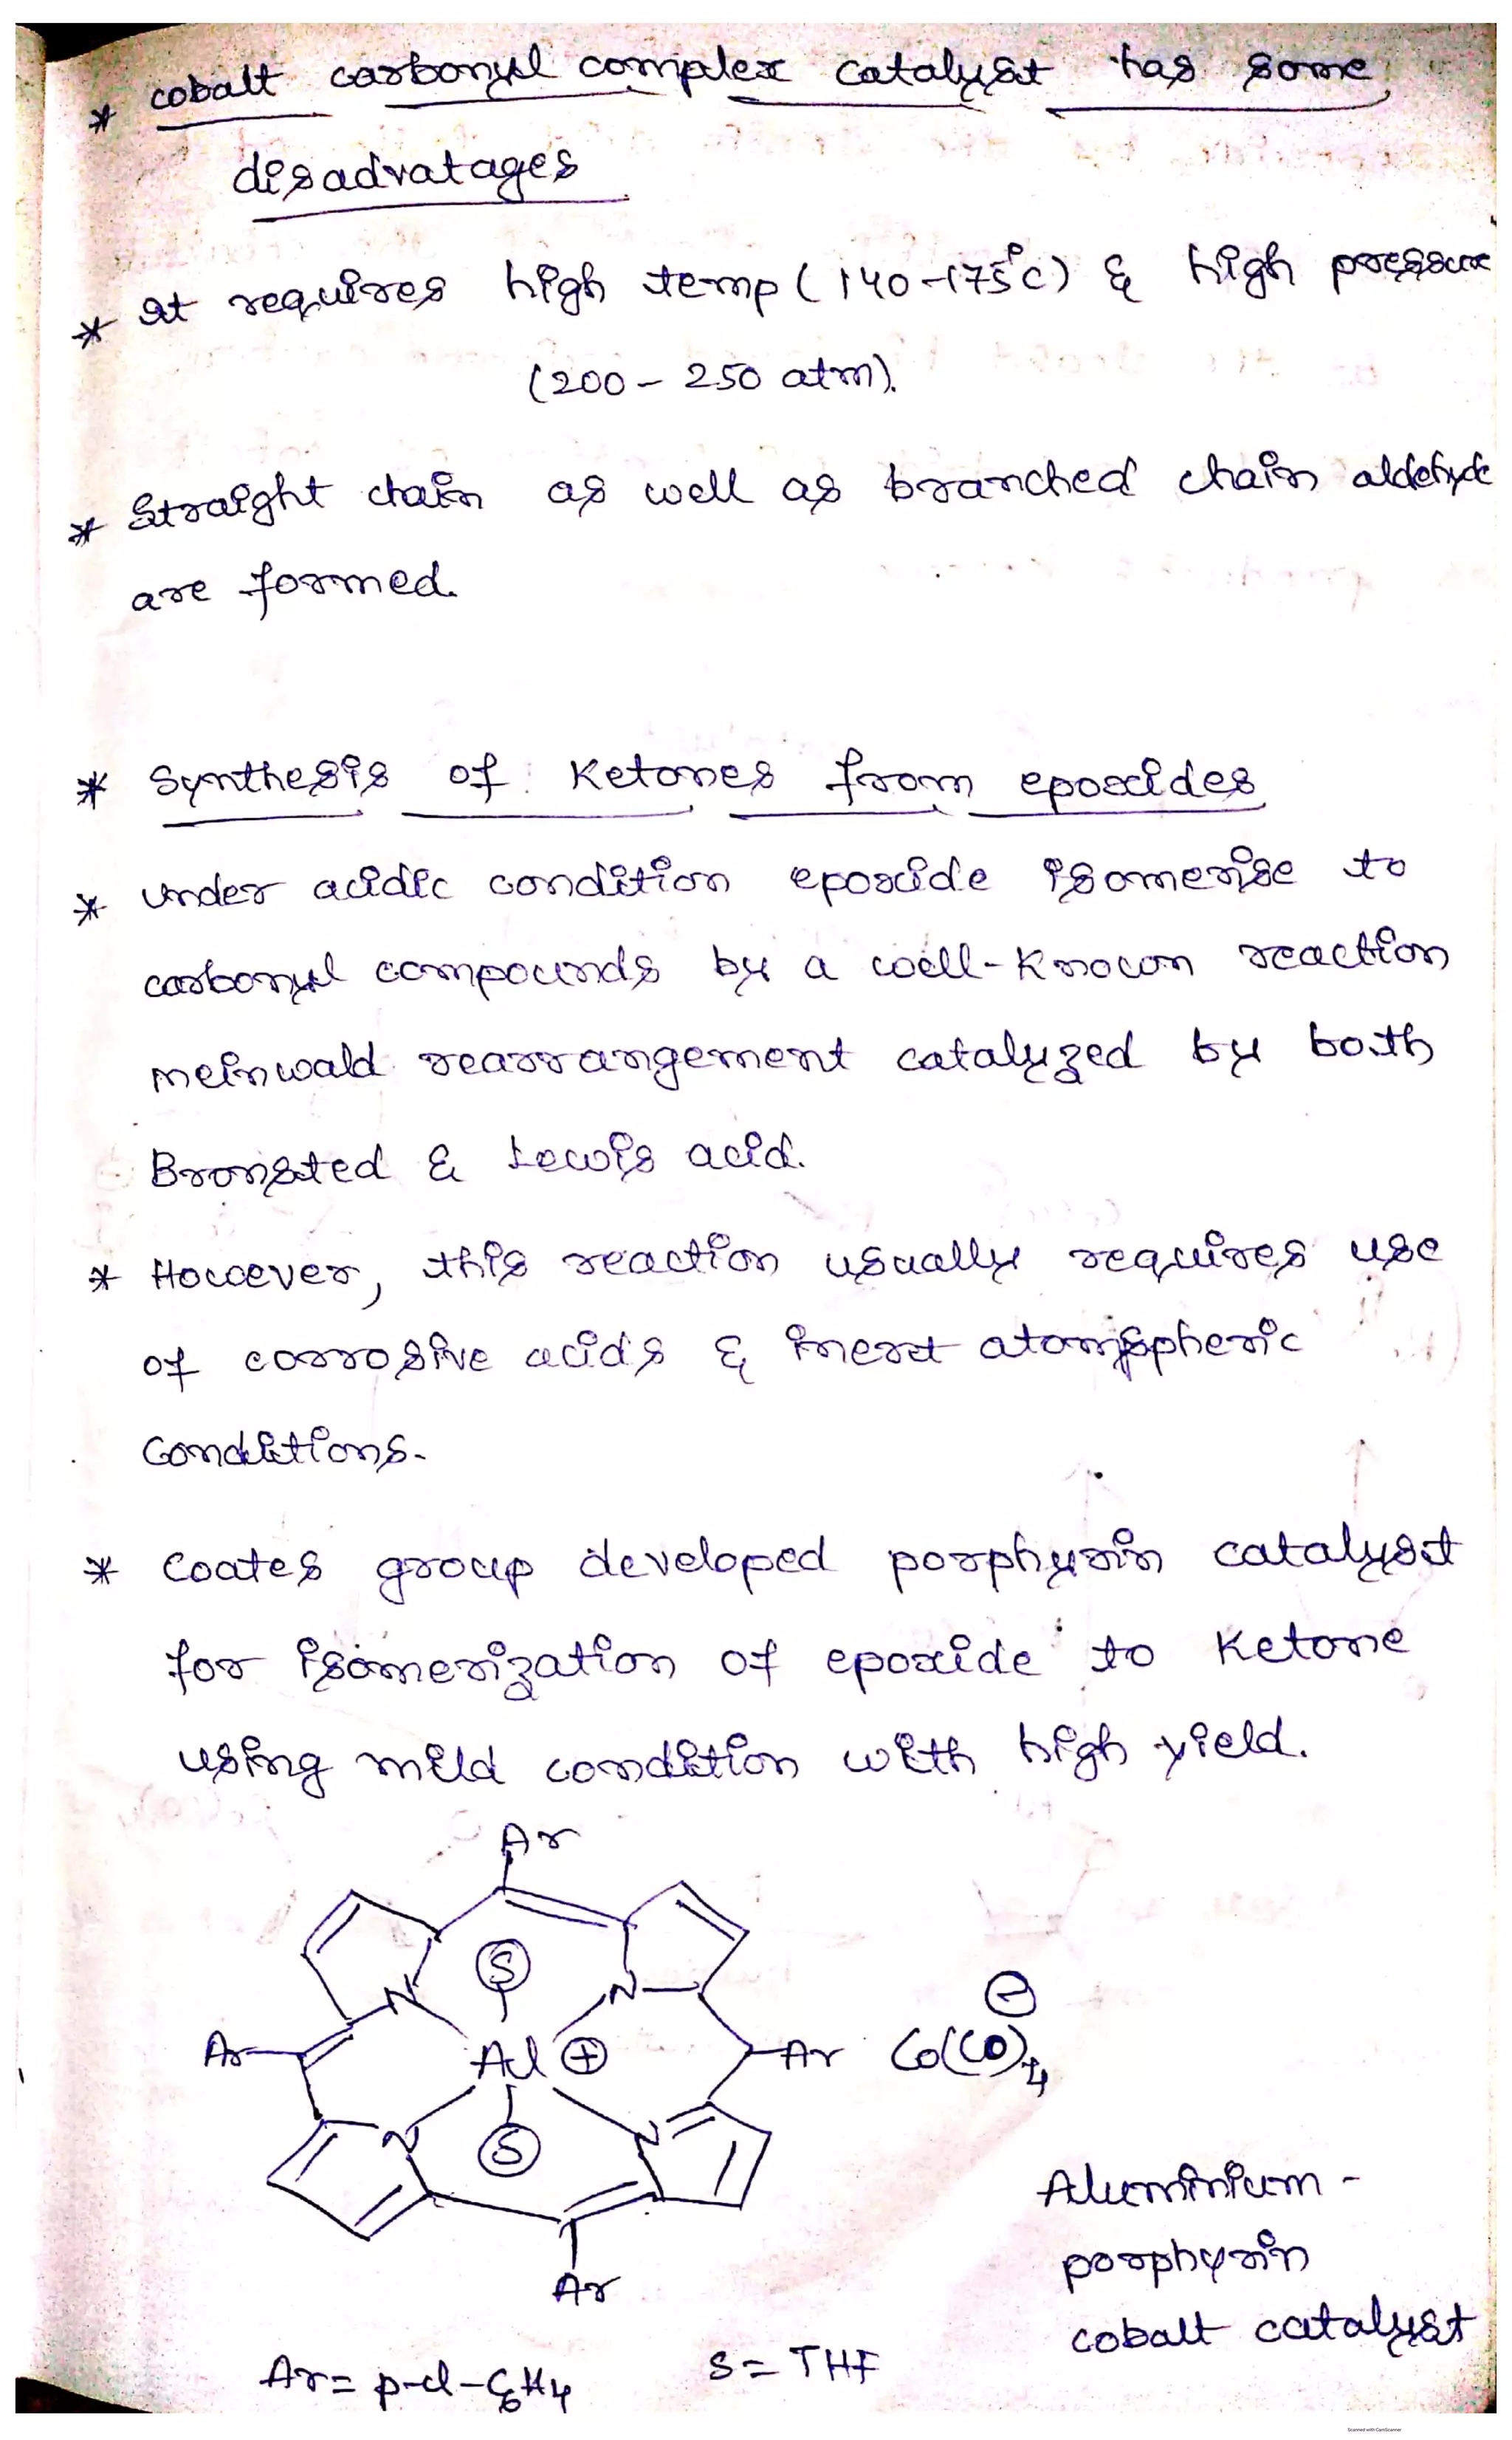 * cobalt carbonyl complex catalyst has some
disadvatages
* It requires high temp (140-175°C) & high pressure
(200 - 250 atm).
* Straight chain as well as branched chain aldehyde
are formed.
* Synthesis of Ketones from epoxides
* under acidic condition epoxide isomerise to
carbonyl compounds by a well-known reaction
meinwald rearrangement catalyzed by both
Bronsted & Lewis acid.
* However, this reaction usually requires use
of corrosive acids & inert atomspheric
Conditions.
* Coates group developed porphyrin catalyst
for isomerization of epoxide to Ketone
using mild condition with high yield.
Ar
S
N N
Ar Al ⊕ Ar Co(CO)4 ⊖
N S N
Ar
Aluminium -
porphyrin
cobalt catalyst
Ar = p-cl-C6H4 S = THF
Scanned with CamScanner